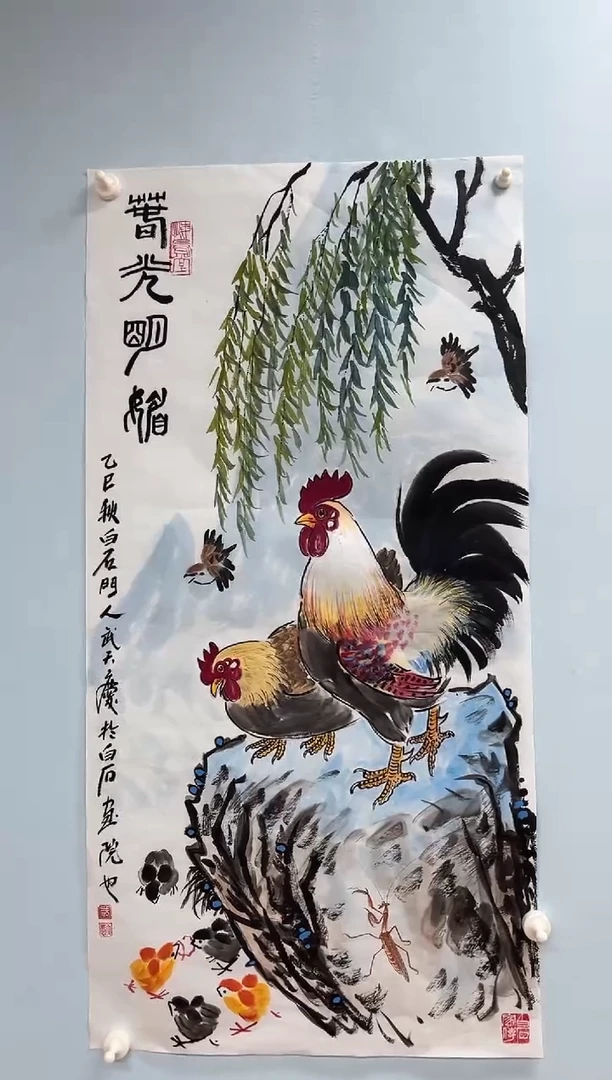 春光明媚
乙巳秋白石門人武天慶於白石畫院也